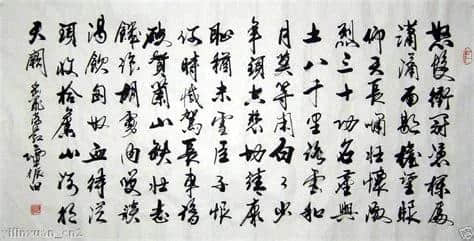 怒髮衝冠憑欄處
瀟瀟雨歇擡望眼
仰天長嘯壯懷激
烈三十功名塵與
土八千里路雲和
月莫等閑白了少
年頭空悲切靖康
恥猶未雪臣子恨
何時滅駕長車踏
破賀蘭山缺壯志
饑餐胡虜肉笑談
渴飲匈奴血待從
頭收拾舊山河朝
天闕
岳飛滿江紅 振田
yilinxuan_cn2